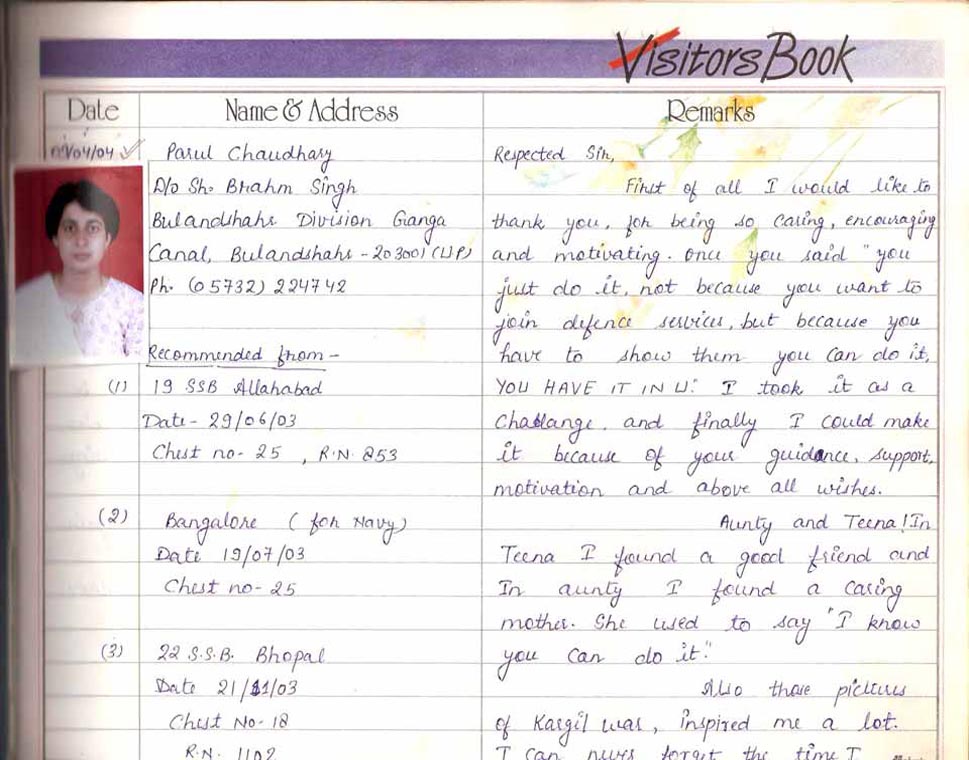 Visitors Book
Date Name & Address Remarks
/04/04 Parul Chaudhary
D/o Sh. Brahm Singh
Bulandshahr Division Ganga
Canal, Bulandshahr - 203001 (UP)
Ph. (05732) 224742
Recommended from -
(1) 19 SSB Allahabad
Date - 29/06/03
Chest no - 25 , R.N. 253
(2) Bangalore ( for Navy)
Date 19/07/03
Chest no - 25
(3) 22 S.S.B. Bhopal
Date 21/11/03
Chest No - 18
R.N. 1102
Respected Sir,
First of all I would like to
thank you, for being so caring, encouraging
and motivating. Once you said "you
just do it, not because you want to
join defence services, but because you
have to show them you can do it,
YOU HAVE IT IN U". I took it as a
Challange, and finally I could make
it because of your guidance, support,
motivation and above all wishes.
Aunty and Teena! In
Teena I found a good friend and
In aunty I found a caring
mother. She used to say "I know
you can do it."
Also those pictures
of Kargil war, inspired me a lot.
I can never forget the time I